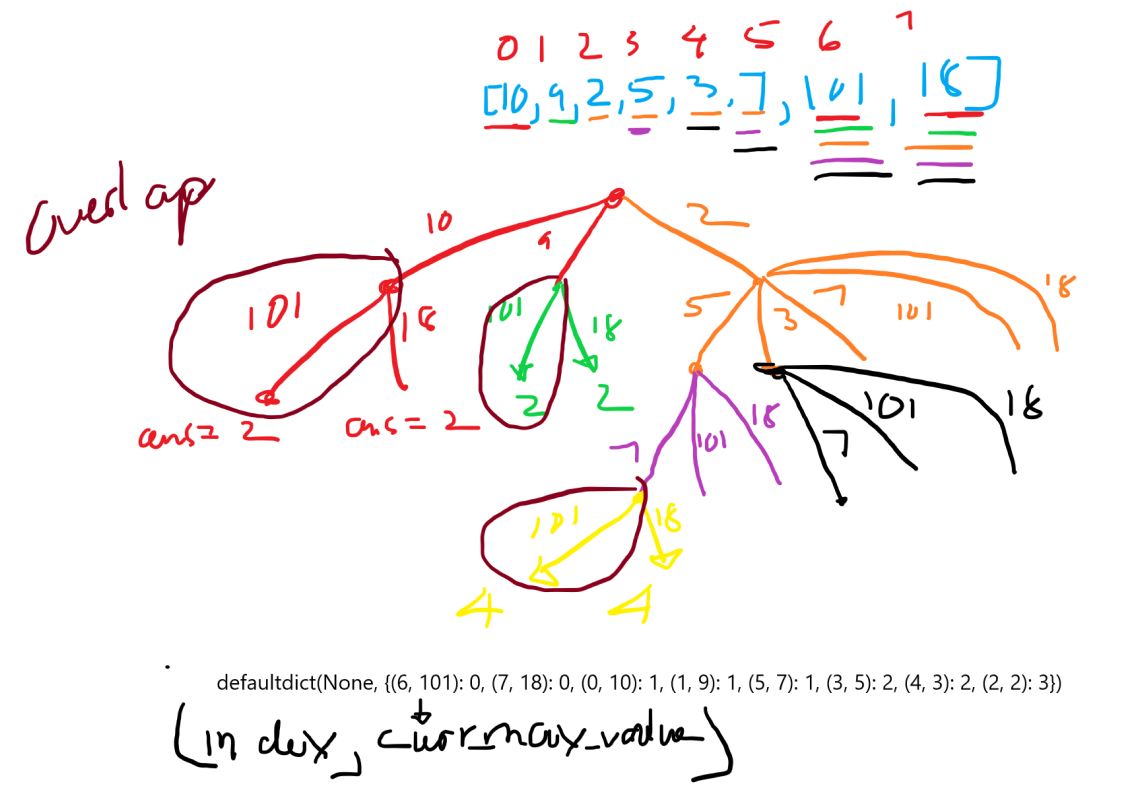 0 1 2 3 4 5 6 7
[10, 9, 2, 5, 3, 7, 101, 18]
overlap
10 9 2
101 18 101 18 5 3 7 101 18
ans= 2 ans= 2 2 2
7 101 18 7 101 18
101 18
4 4
defaultdict(None, {(6, 101): 0, (7, 18): 0, (0, 10): 1, (1, 9): 1, (5, 7): 1, (3, 5): 2, (4, 3): 2, (2, 2): 3})
(index, curr_max_value)